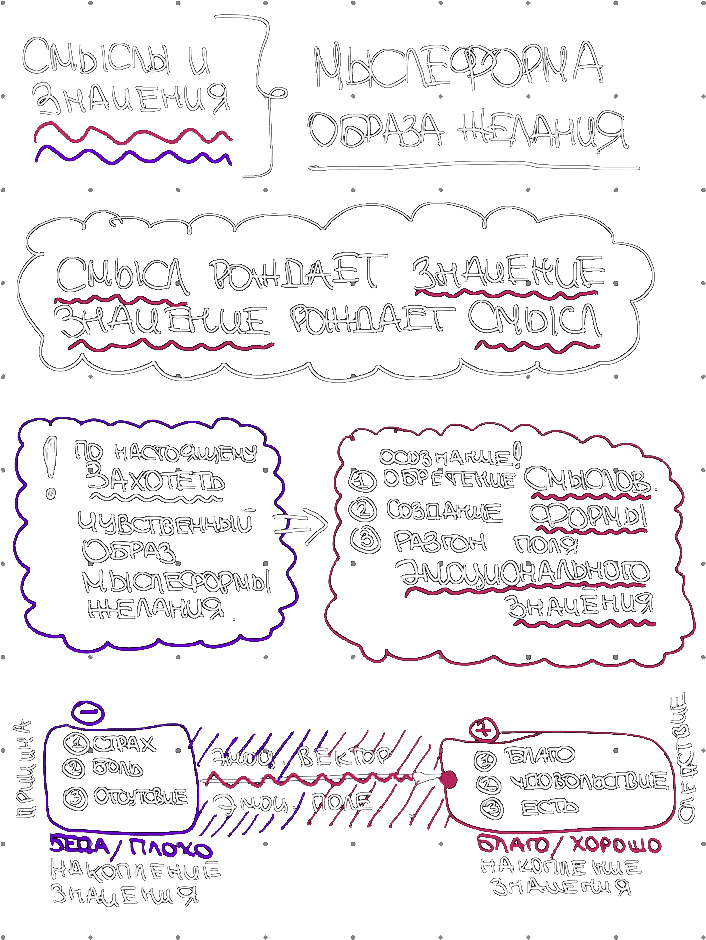 СМЫСЛЫ И
ЗНАЧЕНИЯ
МЫСЛЕФОРМА
ОБРАЗА ЖЕЛАНИЯ
СМЫСЛ РОЖДАЕТ ЗНАЧЕНИЕ
ЗНАЧЕНИЕ РОЖДАЕТ СМЫСЛ
! ПО НАСТОЯЩЕМУ
ЗАХОТЕТЬ
ЧУВСТВЕННЫЙ
ОБРАЗ
МЫСЛЕФОРМЫ
ЖЕЛАНИЯ.
ОСОЗНАНИЕ!
1 ОБРЕТЕНИЕ СМЫСЛОВ.
2 СОЗДАНИЕ ФОРМЫ
3 РАЗГОН ПОЛЯ
ЭМОЦИОНАЛЬНОГО
ЗНАЧЕНИЯ
ПРИЧИНА
−
1 СТРАХ
2 БОЛЬ
3 ОТСУТСВИЕ
БЕДА / ПЛОХО
НАКОПЛЕНИЕ
ЗНАЧЕНИЯ
ЭМОЦ. ВЕКТОР
ЭМОЦ. ПОЛЕ
+
1 БЛАГО
2 УДОВОЛЬСТВИЕ
3 ЕСТЬ
БЛАГО / ХОРОШО
НАКОПЛЕНИЕ
ЗНАЧЕНИЯ
СЛЕДСТВИЕ